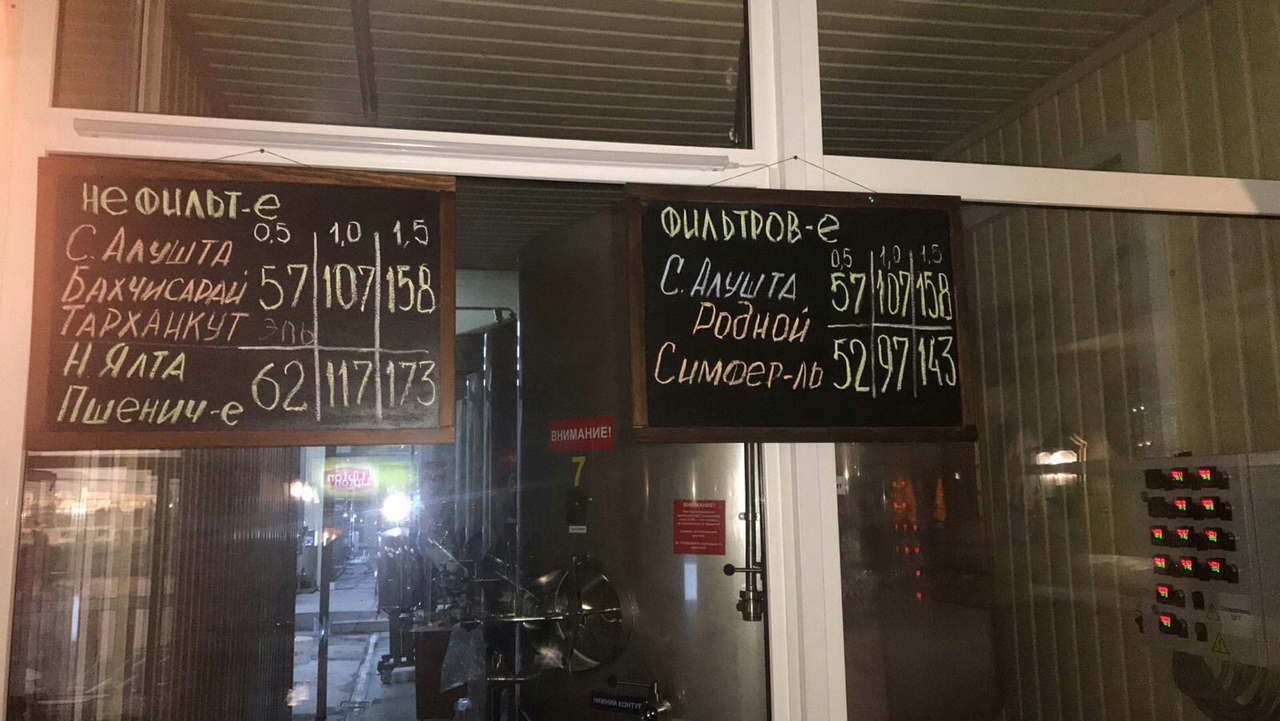 Не ФИЛЬТ-е
0,5 1,0 1,5
С. АЛУШТА
БАХЧИСАРАЙ 57 107 158
ТАРХАНКУТ ЭЛЬ
Н. ЯЛТА
62 117 173
ПШЕНИЧ-е
ФИЛЬТРОВ-е
0,5 1,0 1,5
С. АЛУШТА 57 107 158
РОДНОЙ
СИМФЕР-ЛЬ 52 97 143
ВНИМАНИЕ!
7
Lipton
ВНИМАНИЕ!
НИЖНИЙ КОНТУР